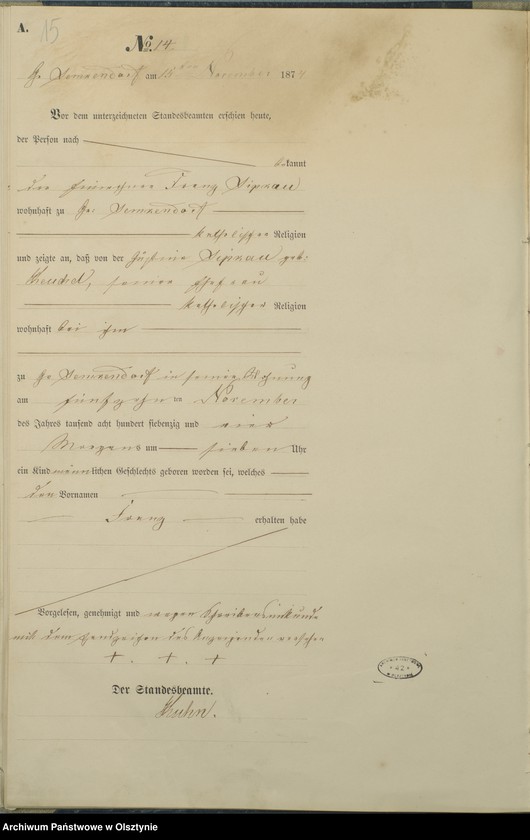 A.
15
No. 14
Gr. am 15ten November 1874
Vor dem unterzeichneten Standesbeamten erschien heute,
der Person nach
bekannt
der Franz
wohnhaft zu Gr.
katholischer Religion
und zeigte an, daß von der geb.
seiner Ehefrau
katholischer Religion
wohnhaft bei ihm
zu Gr. in seiner Wohnung
am fünfzehnten November
des Jahres tausend acht hundert siebenzig und vier
Morgens um sieben Uhr
ein Kind männlichen Geschlechts geboren worden sei, welches
den Vornamen
Franz erhalten habe
Vorgelesen, genehmigt und wegen Schreibensunkunde
mit dem Handzeichen des Anzeigenden versehen
+ . + . +
Der Standesbeamte.
Kuhn.
42
Archiwum Państwowe w Olsztynie